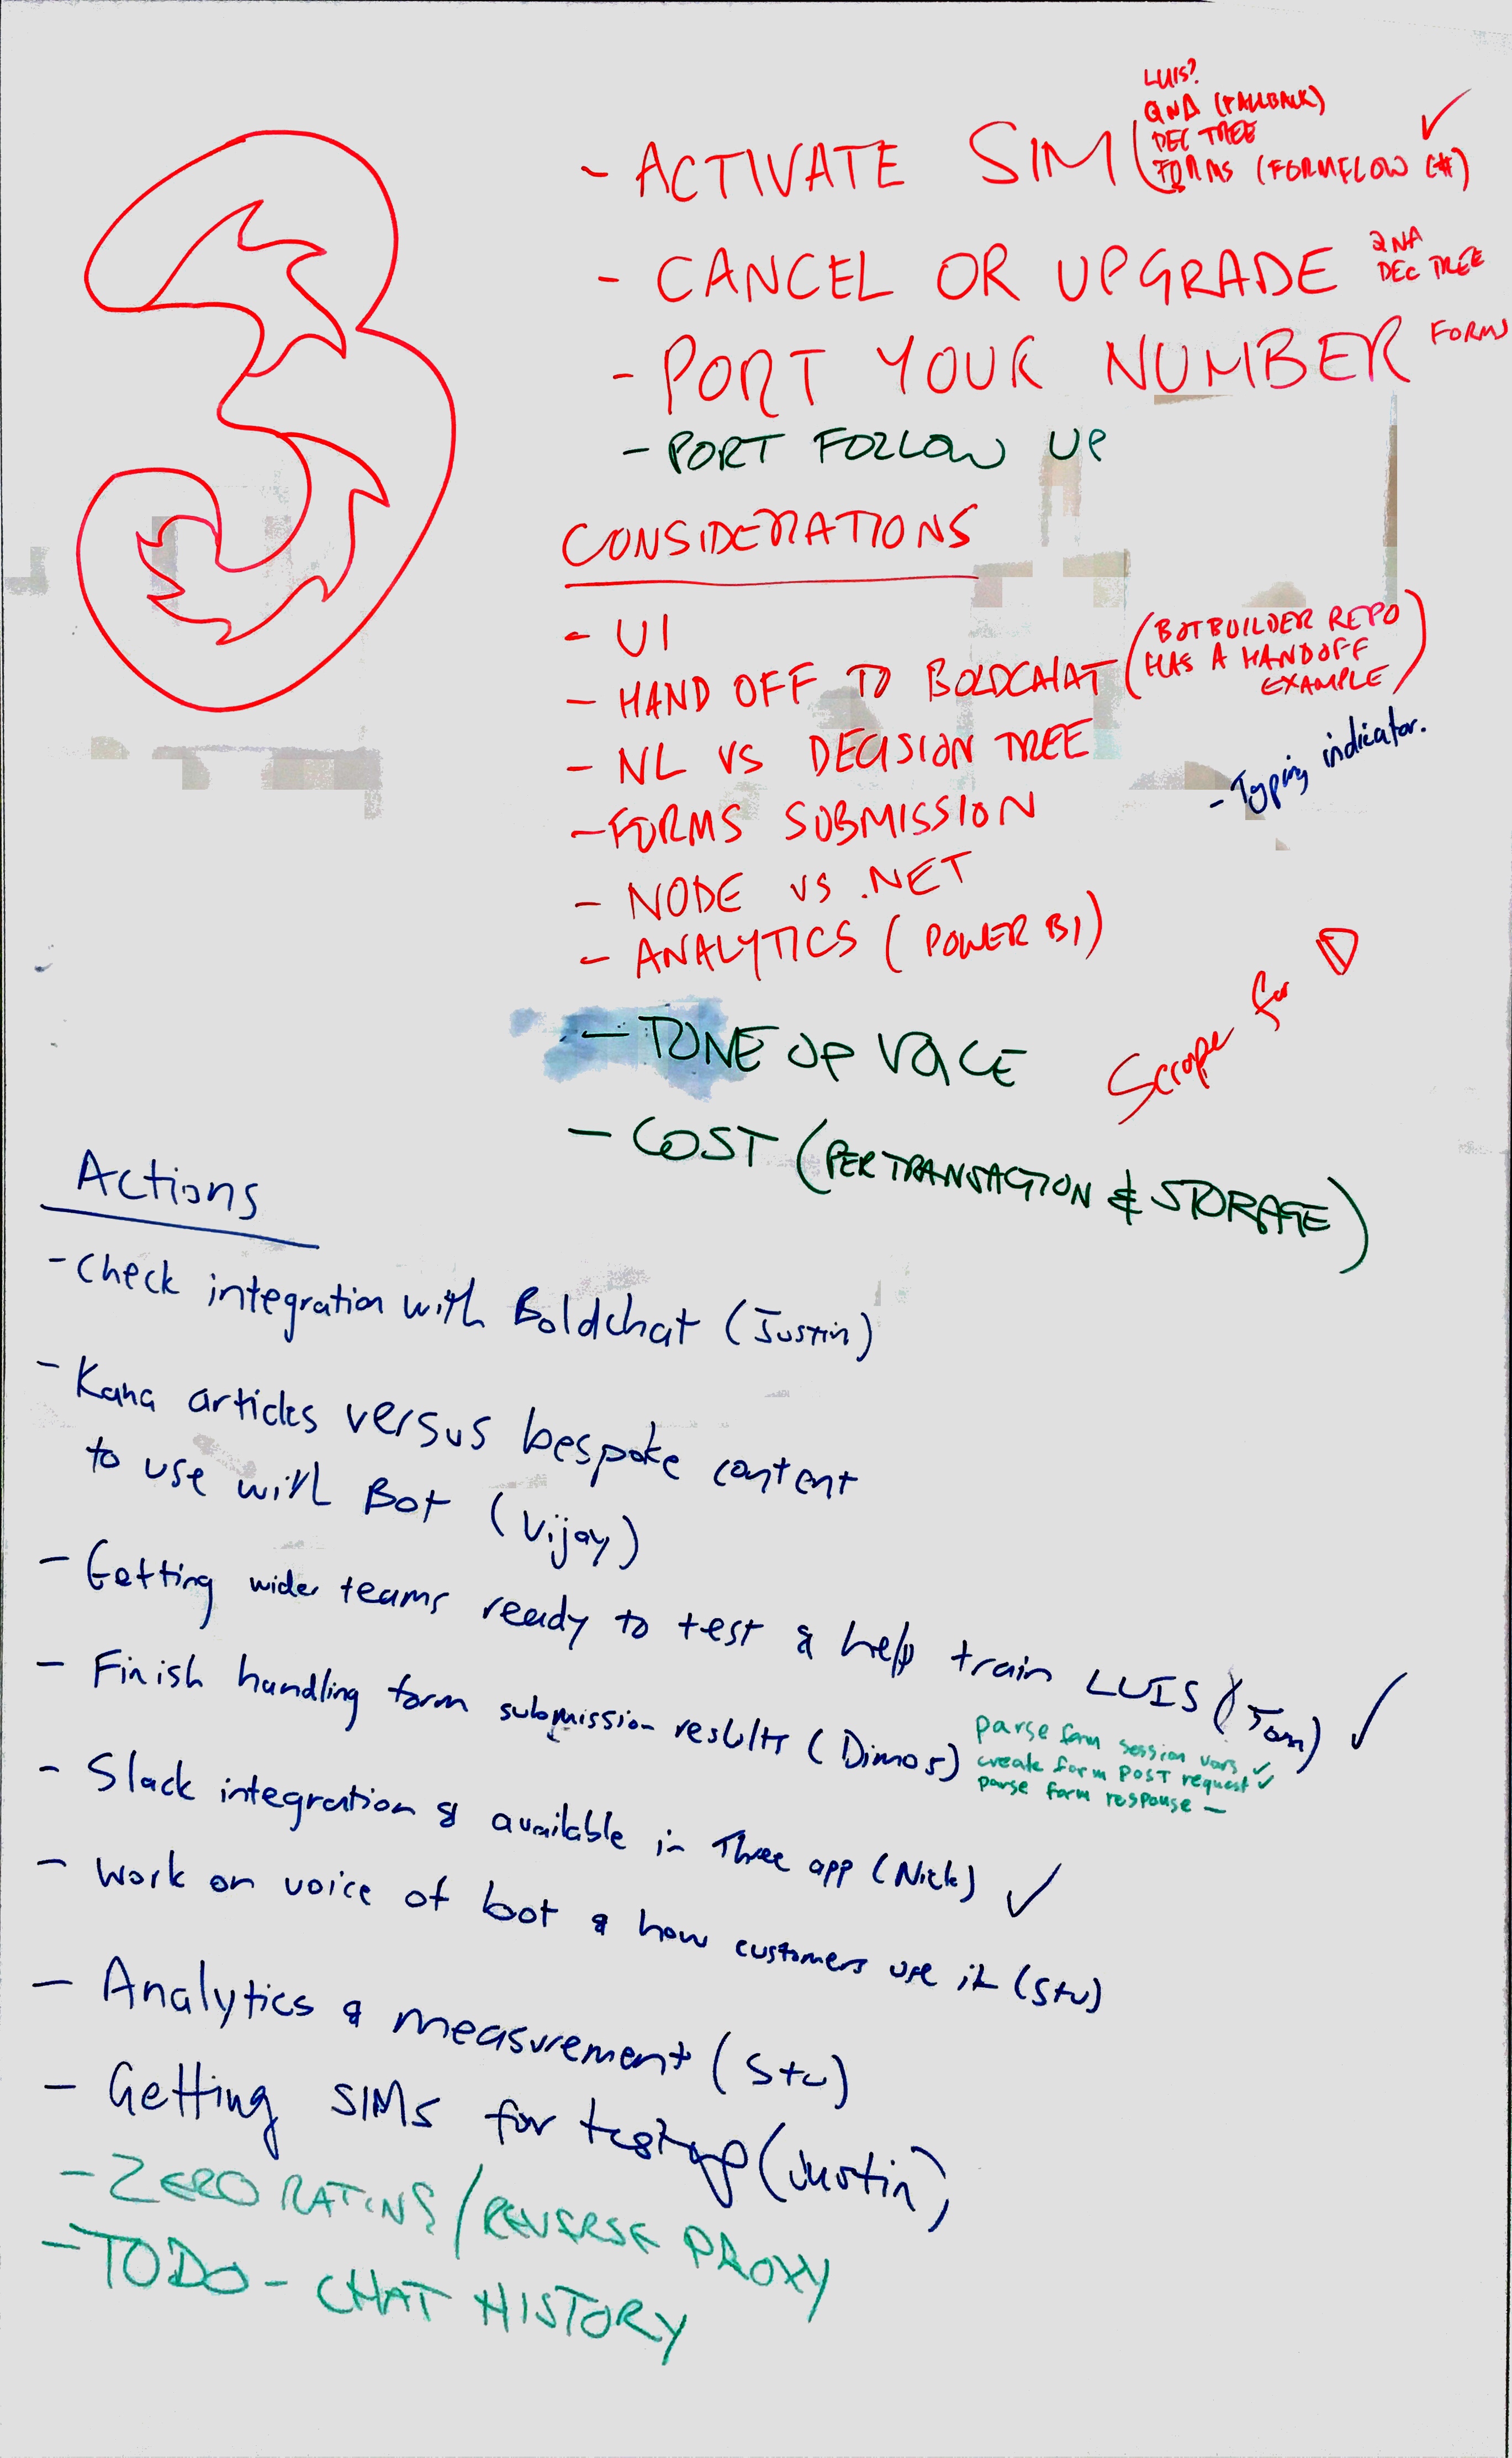 LUIS?
QNA (FALLBACK)
DEC TREE
- ACTIVATE SIM ( FORMS (FORMFLOW C#) ✓
- CANCEL OR UPGRADE QNA
DEC TREE
- PORT YOUR NUMBER FORMS
- PORT FOLLOW UP
CONSIDERATIONS
- UI
- HAND OFF TO BOLDCHAT (BOTBUILDER REPO
HAS A HANDOFF
EXAMPLE)
- NL VS DECISION TREE
- Typing indicator.
- FORMS SUBMISSION
- NODE VS .NET
- ANALYTICS (POWER BI)
- TONE OF VOICE
Scrape for
- COST (PER TRANSACTION & STORAGE)
Actions
- Check integration with Boldchat (Justin)
- Kana articles versus bespoke content
to use with Bot (Vijay)
- Getting wider teams ready to test & help train LUIS (Tom) ✓
- Finish handling form submission results (Dimos)
parse form session vars ✓
create form POST request ✓
parse form response –
- Slack integration & available in Three app (Nick) ✓
- Work on voice of bot & how customers use it (Stu)
- Analytics & measurement (Stu)
- Getting SIMS for testing (Justin)
- ZERO RATING / REVERSE PROXY
- TODO - CHAT HISTORY